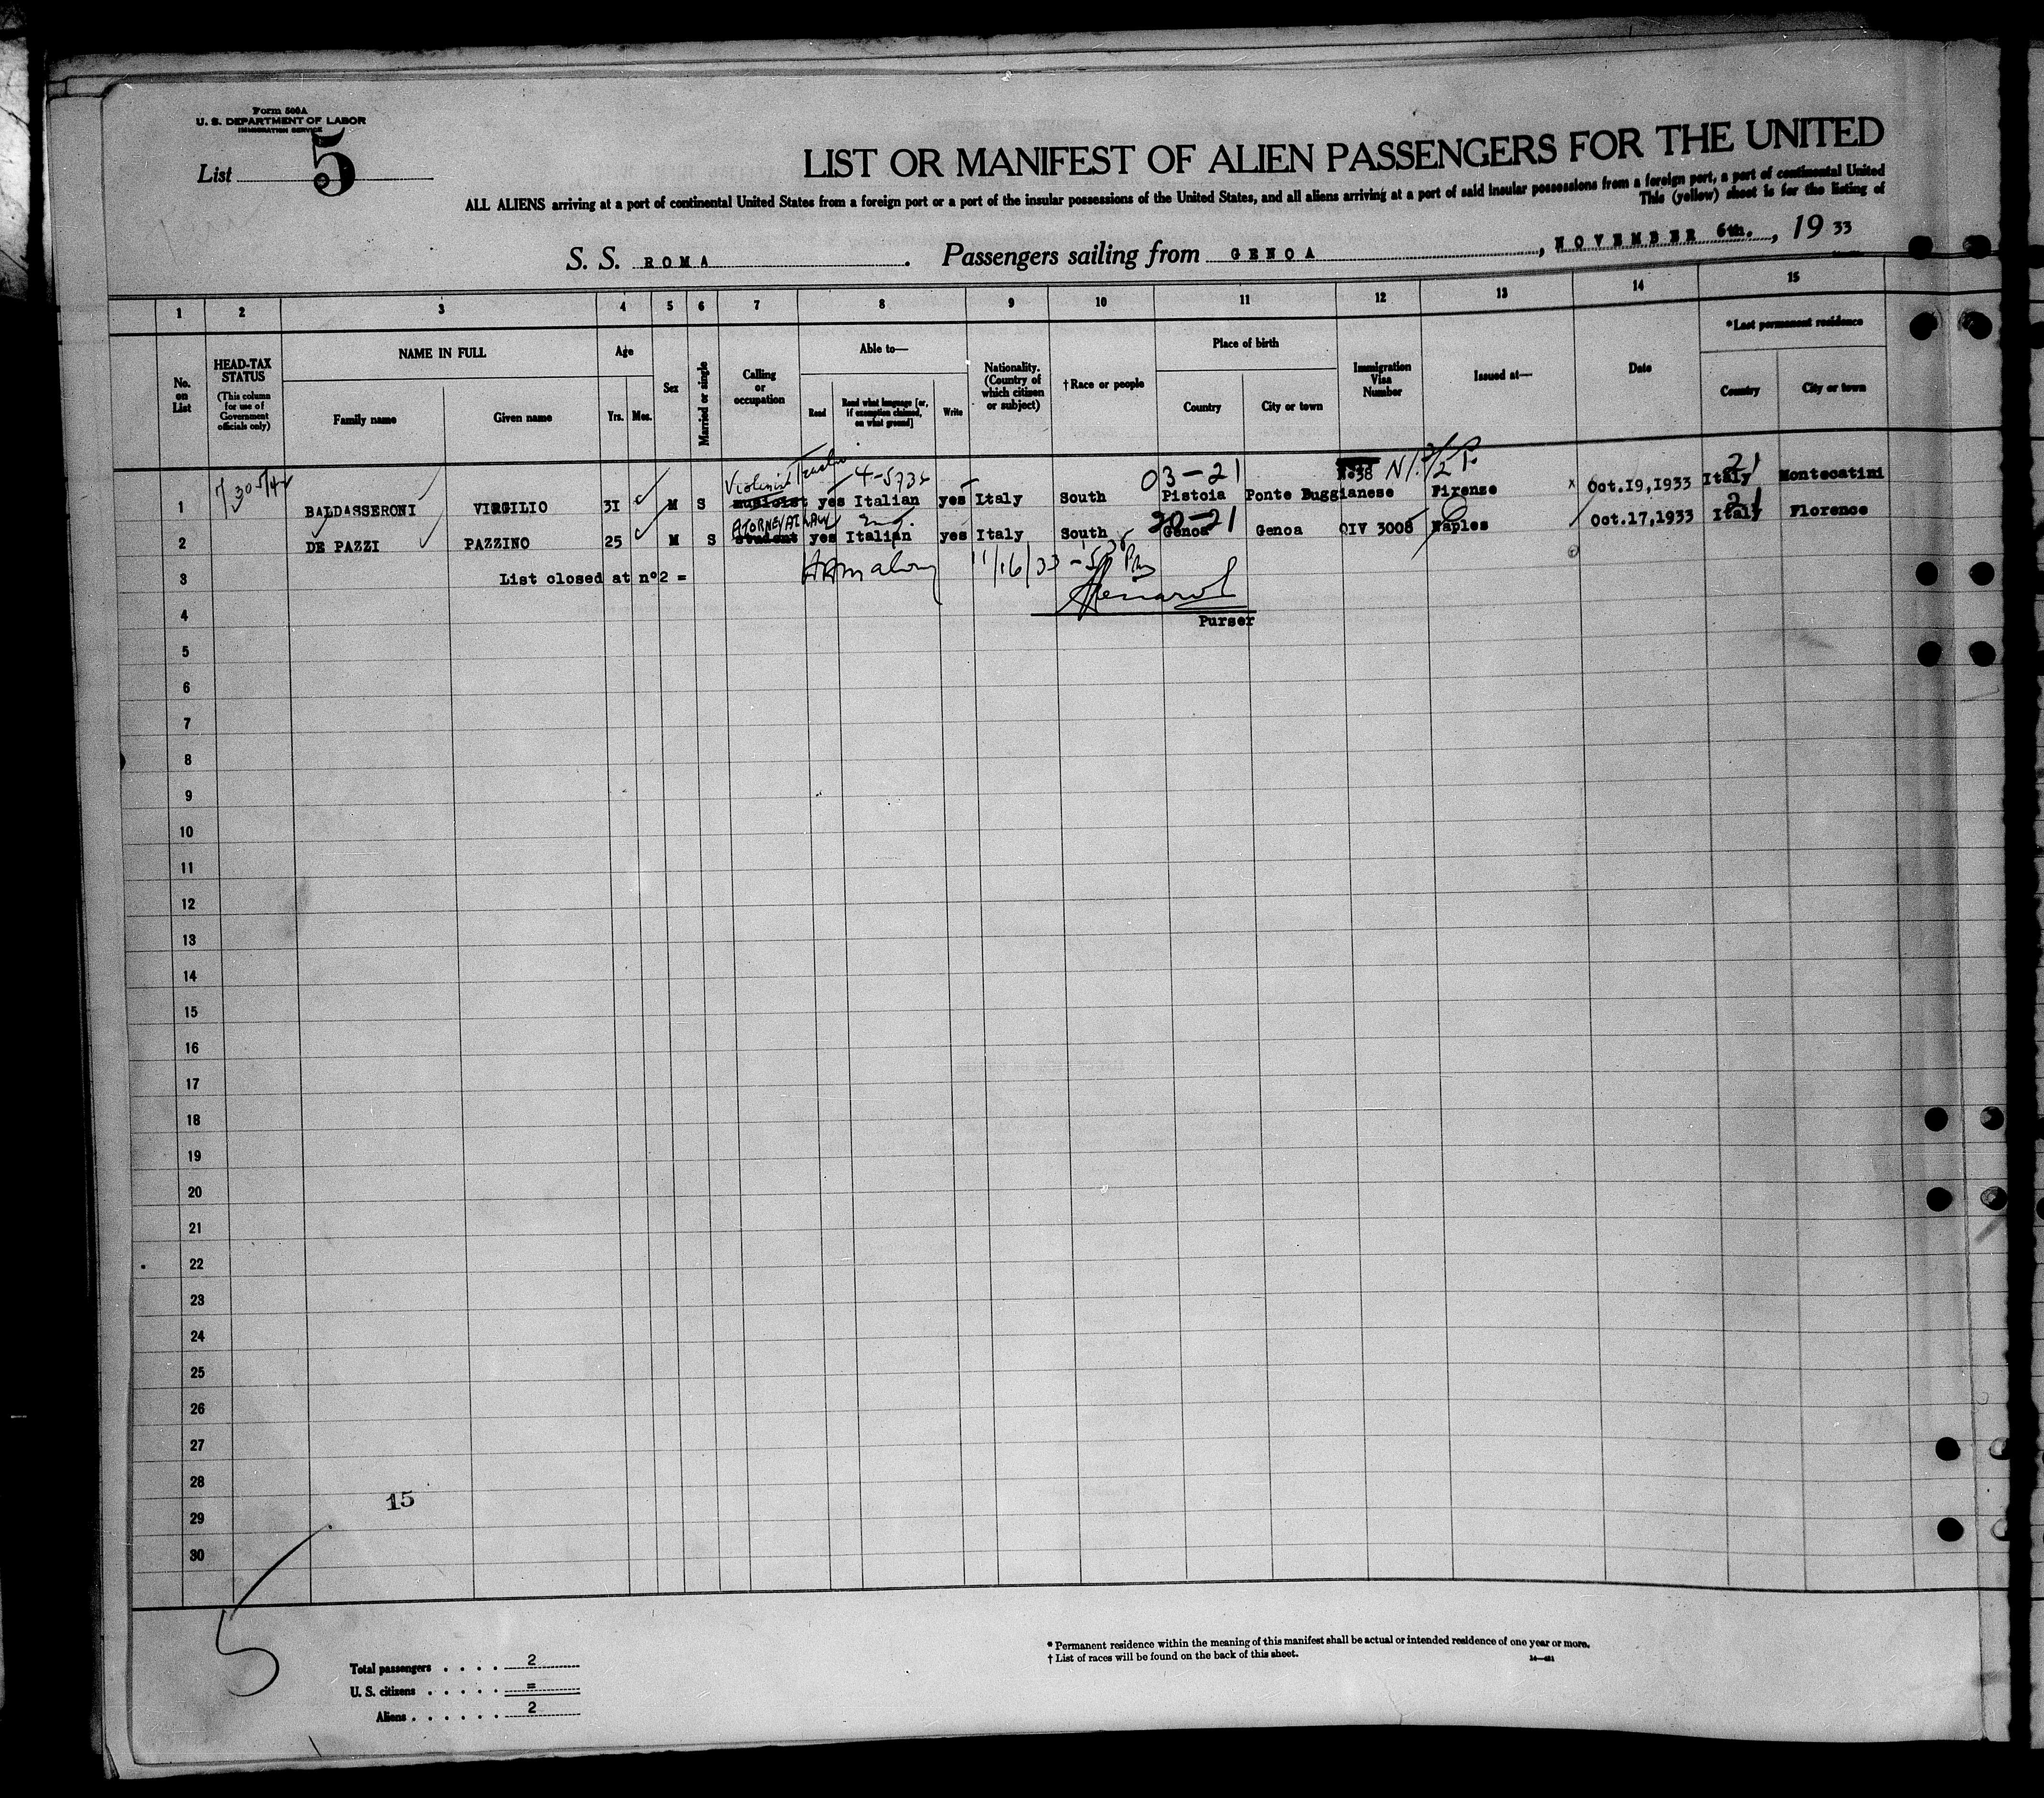 Form 500A
U. S. DEPARTMENT OF LABOR
IMMIGRATION SERVICE
List 5
LIST OR MANIFEST OF ALIEN PASSENGERS FOR THE UNITED
ALL ALIENS arriving at a port of continental United States from a foreign port or a port of the insular possessions of the United States, and all aliens arriving at a port of said insular possessions from a foreign port, a port of continental United
This (yellow) sheet is for the listing of
S. S. ROMA . Passengers sailing from GENOA , NOVEMBER 6th. , 19 33
1 2 3 4 5 6 7 8 9 10 11 12 13 14 15
No. on List
HEAD-TAX STATUS
(This column for use of Government officials only)
NAME IN FULL
Family name
Given name
Age
Yrs.
Mos.
Sex
Married or single
Calling or occupation
Able to—
Read
Read what language [or, if exemption claimed, on what ground]
Write
Nationality. (Country of which citizen or subject)
† Race or people
Place of birth
Country
City or town
Immigration Visa Number
Issued at—
Date
* Last permanent residence
Country
City or town
Violinist Teacher 4-5736 03-21 21
1 BALDASSERONI VIRGILIO 31 M S musicist yes Italian yes Italy South Pistoia Ponte Buggianese No38 Firenze x Oct.19,1933 Italy Montecatini
ATORNEY AT LAW Eng. 20-21 21
2 DE PAZZI PAZZINO 25 M S student yes Italian yes Italy South Genoa Genoa QIV 3008 Naples Oct.17,1933 Italy Florence
3 List closed at n°2 = 11/16/33
4
Purser
5
6
7
8
9
10
11
12
13
14
15
16
17
18
19
20
21
22
23
24
25
26
27
28
15
29
30
5
Total passengers . . . . 2
U. S. citizens . . . . . =
Aliens . . . . . . 2
* Permanent residence within the meaning of this manifest shall be actual or intended residence of one year or more.
† List of races will be found on the back of this sheet.